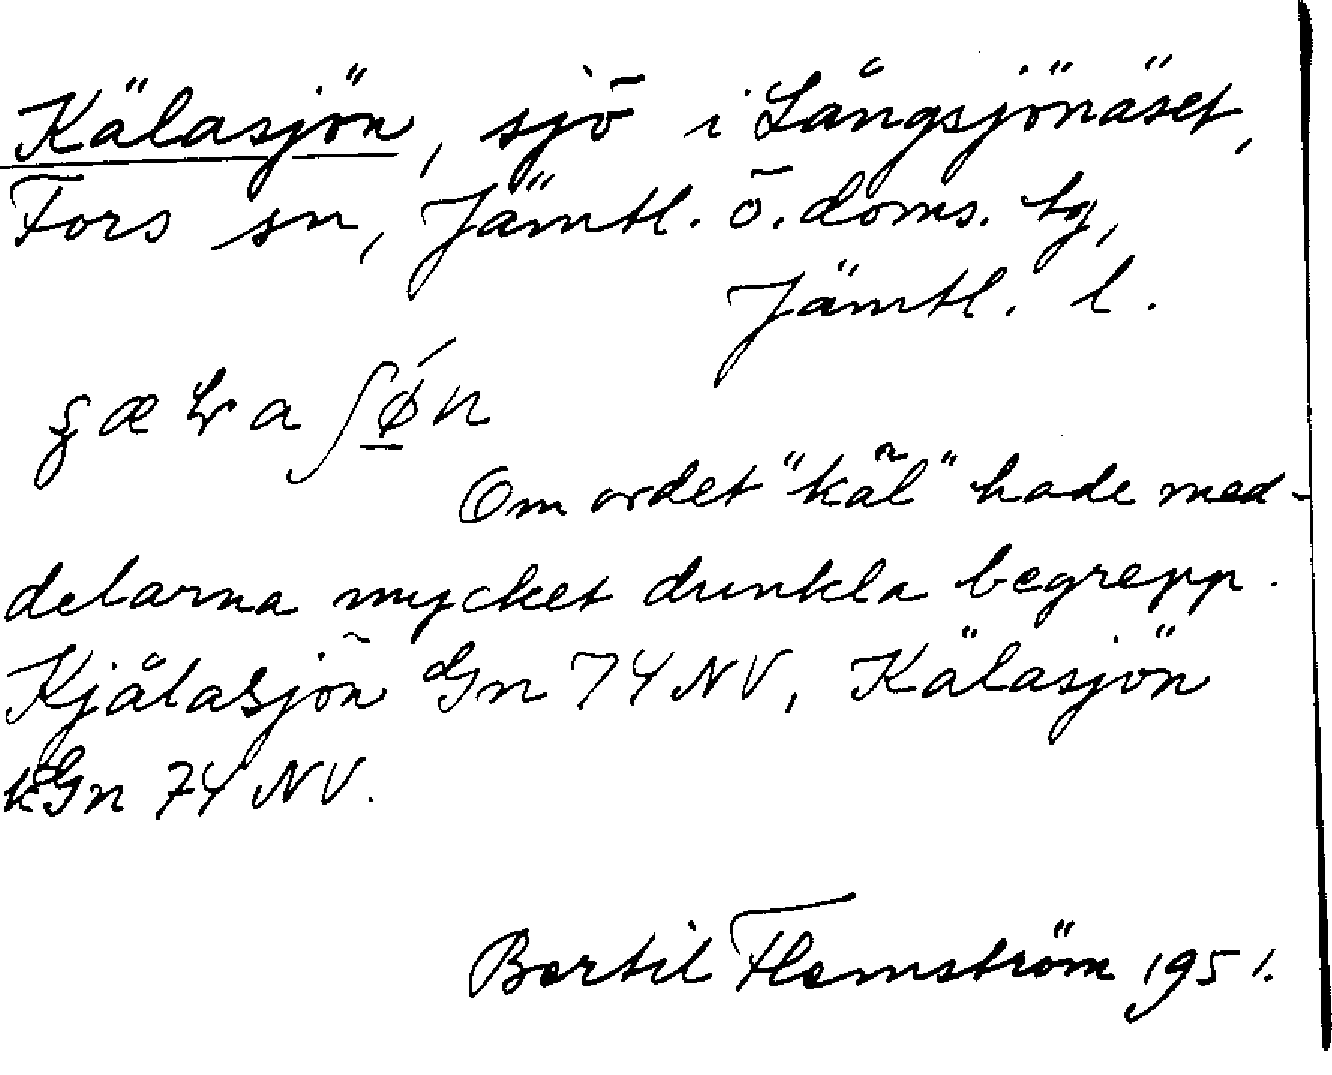 Kälasjön, sjö i Långsjönäset,
Fors sn, Jämtl. ö. doms. tg,
Jämtl. l.
Om ordet "käl" hade med-
delarna mycket dunkla begrepp.
Kjålasjön Gn 74 NV, Kälasjön
kGn 74 NV.
Bertil Flemström 1951.